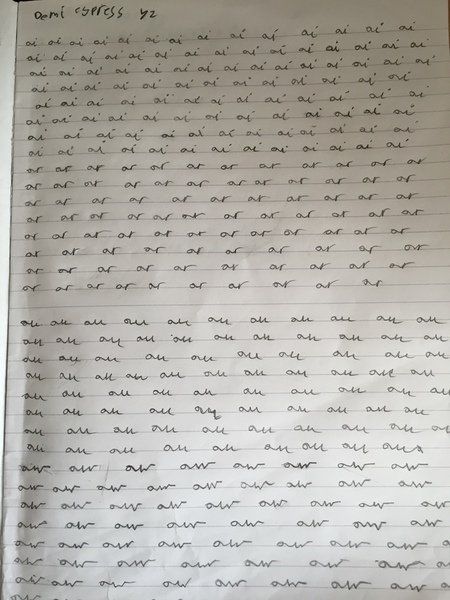 Demi cypress y2
ai ai ai ai ai ai ai ai ai ai ai ai ai ai
ai ai ai ai ai ai ai ai ai ai ai ai ai ai ai ai
ai ai ai ai ai ai ai ai ai ai ai ai ai ai ai
ai ai ai ai ai ai ai ai ai ai ai ai ai
ai ai ai ai ai ai ai ai ai ai ai ai ai
ai ai ai ai ai ai ai ai ai ai ai ai ai
ai ai ai ai ai ai ai ai ai ai ai ai ai
ai ai ai ai ai ai ai ai ai ai ai ai ai
ar ar ar ar ar ar ar ar ar ar ar ar
ar ar ar ar ar ar ar ar ar ar ar ar
ar ar ar ar ar ar ar ar ar ar ar
ar ar ar ar ar ar ar ar ar ar ar ar
ar ar ar ar ar ar ar ar ar ar ar ar
ar ar ar ar ar ar ar ar ar ar
ar ar ar ar ar ar ar ar ar ar
ar ar ar ar ar ar ar ar ar ar
au au au au au au au au au au au
au au au au au au au au au au au
au au au au au au au au au au
au au au au au au au au au au au
au au au au au au au au au au
au au au au au au au au au
au au au au au au au au au au
au au au au au au au au au au
aw aw aw aw aw aw aw aw aw
aw aw aw aw aw aw aw aw aw aw
aw aw aw aw aw aw aw aw aw
aw aw aw aw aw aw aw aw
aw aw aw aw aw aw aw aw aw
aw aw aw aw aw aw aw aw
aw aw aw aw aw aw aw aw aw